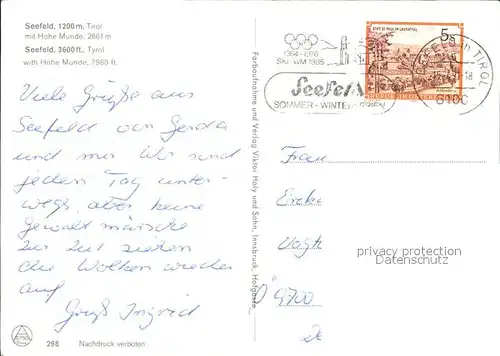 Seefeld, 1200 m, Tirol
mit Hohe Munde, 2661 m
Seefeld, 3600 ft., Tyrol
with Hohe Munde, 7980 ft.
1964 - 1976
SKI-WM 1985
Seefeld
SOMMER - WINTER - FERIEN
5 S
SEEFELD IN TIROL
6100
REPUBLIK ÖSTERREICH
Viele Grüße aus
Seefeld von Gerda
und mir Wir sind
jeden Tag unter-
wegs, aber keine
Gewaltmärsche
zur Zeit ziehen
die Wolken wieder
auf
Gruß Ingrid
Farbaufnahme und Verlag Viktor Holy und Sohn, Innsbruck, Hofgasse
Frau
privacy protection
VOGH
watermark
298
Nachdruck verboten